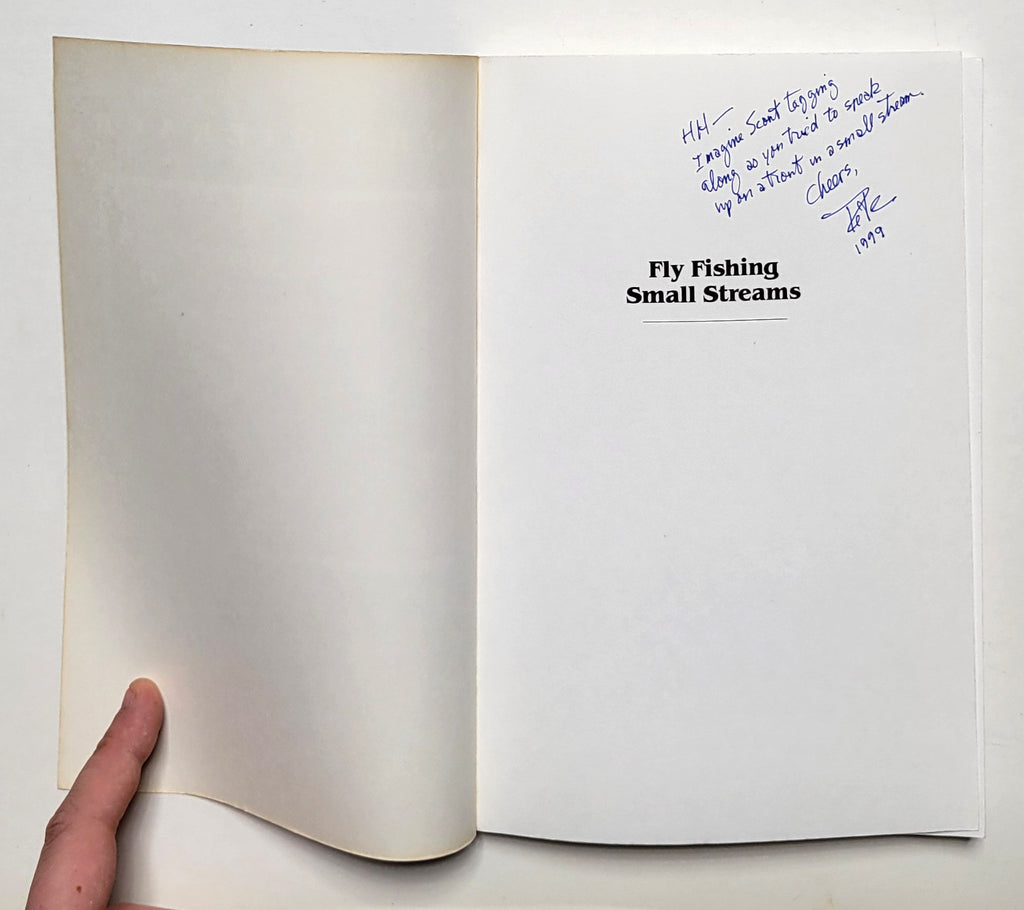 HH—
Imagine Scout tagging
along as you tried to speak
up on a trout in a small stream.
Cheers,
1999
Fly Fishing
Small Streams